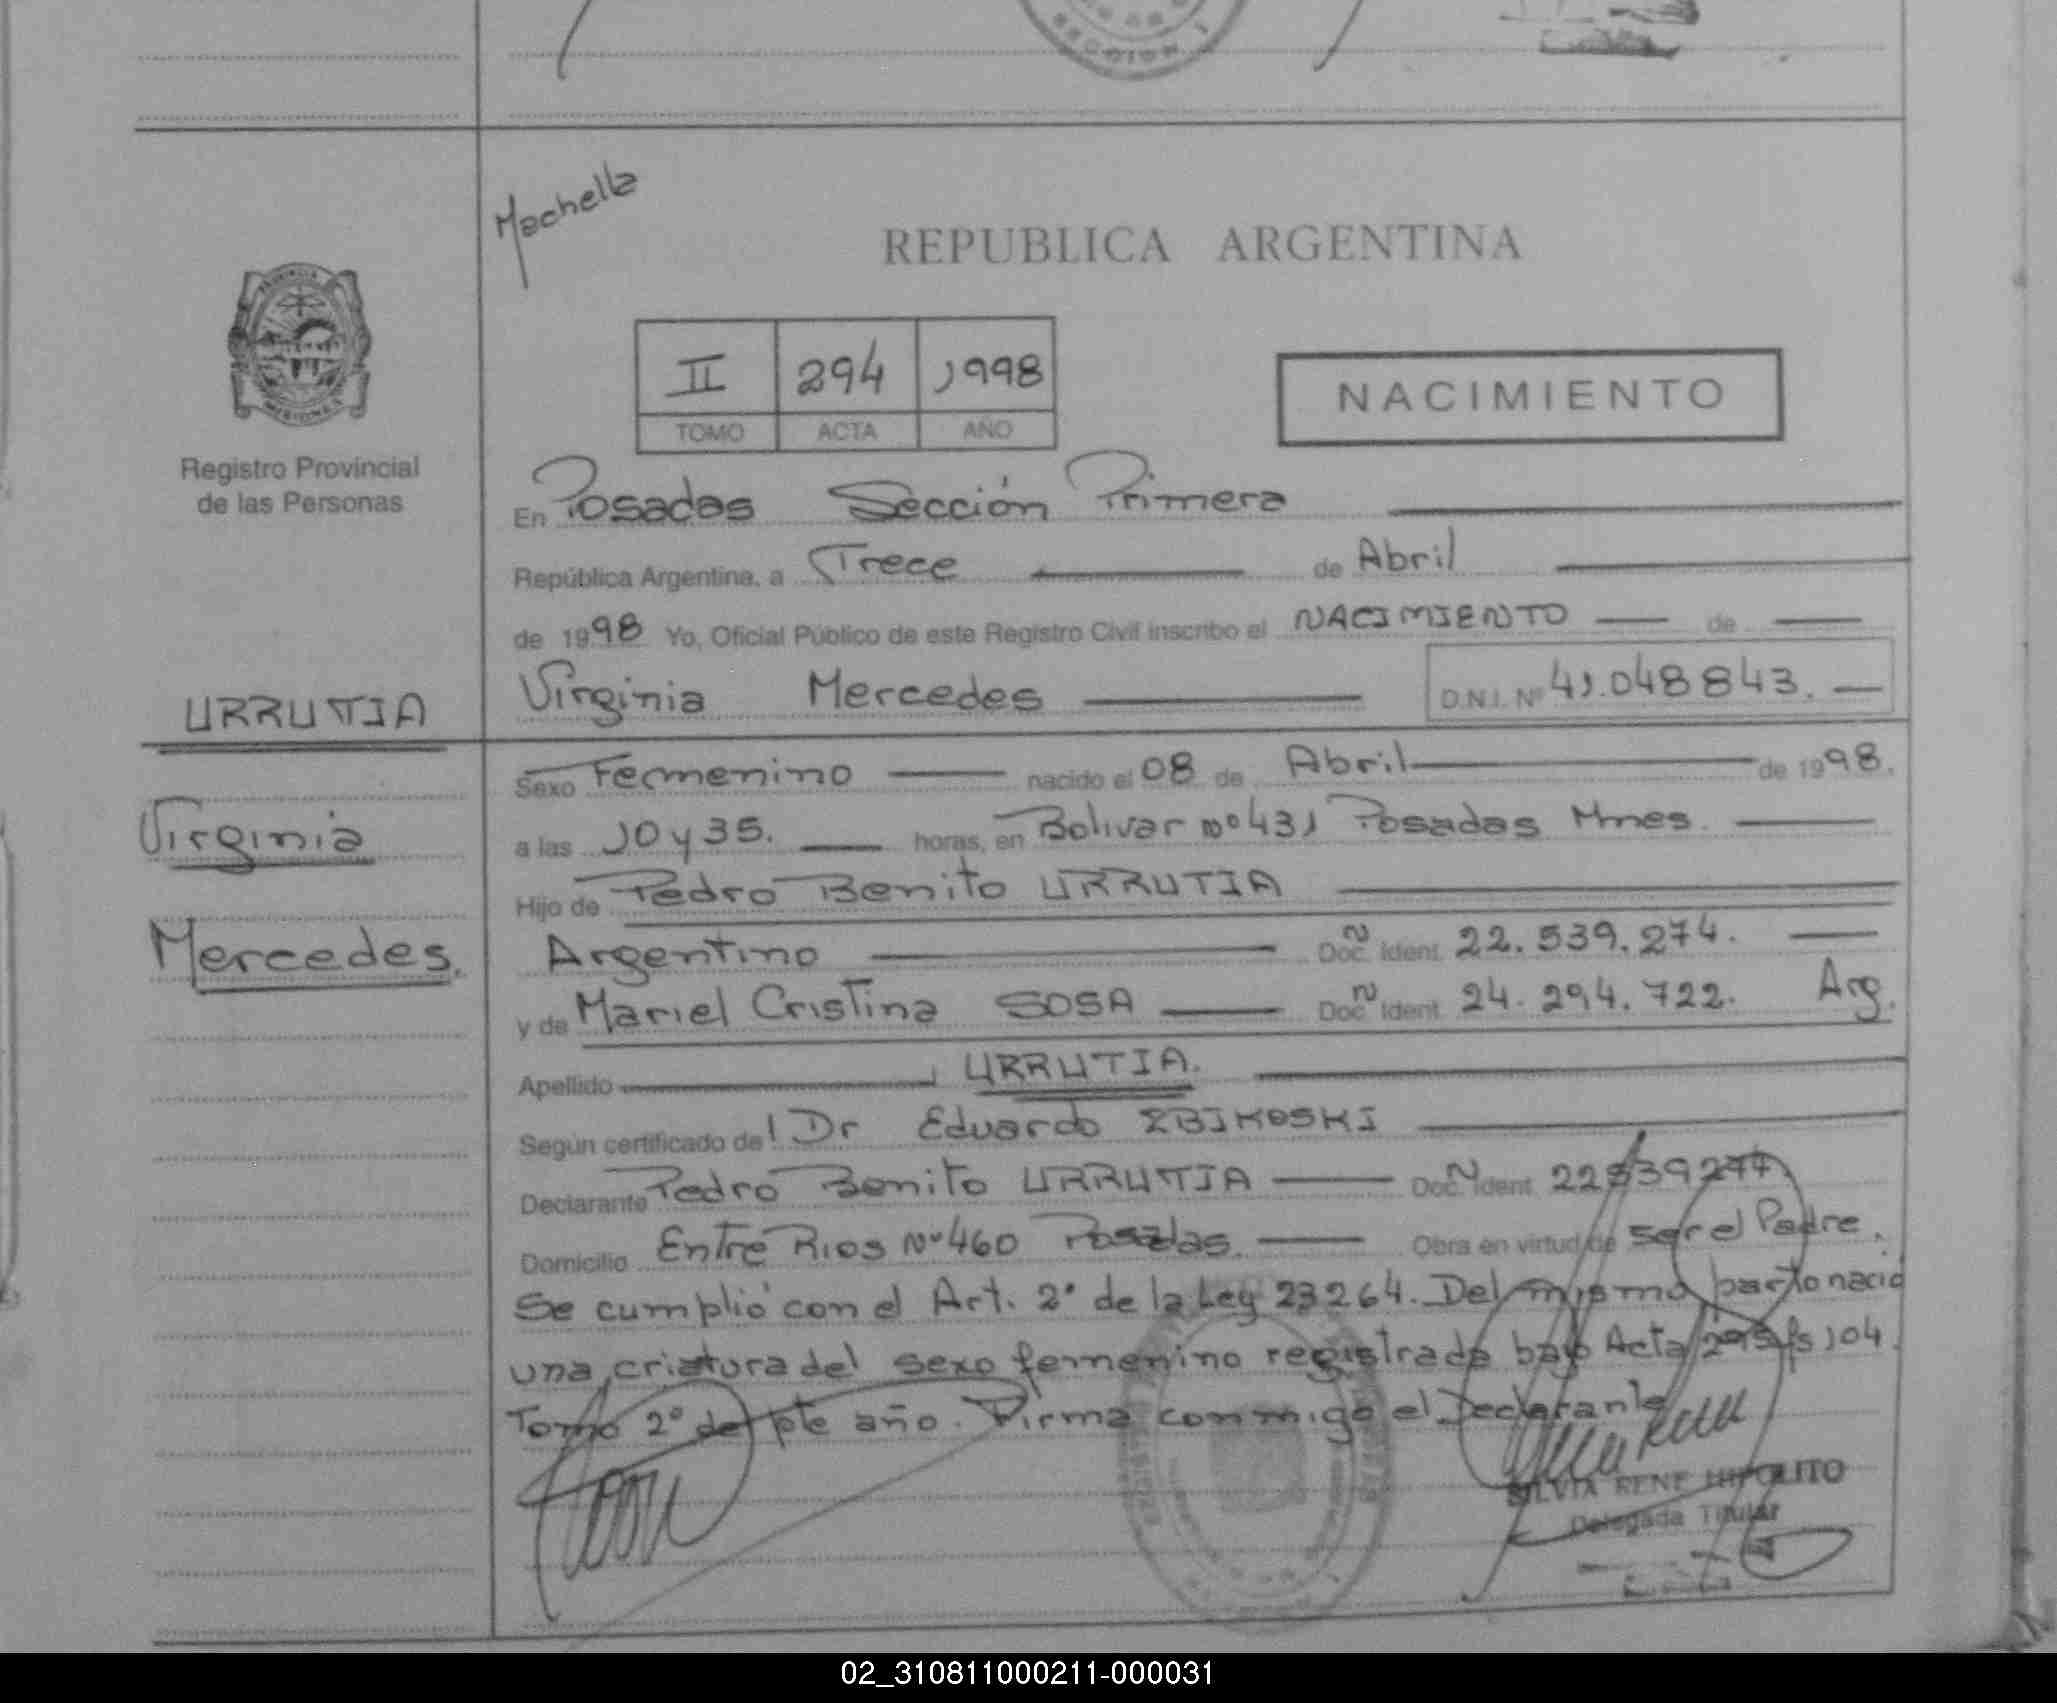 SECCION 1
Machella
REPUBLICA ARGENTINA
PROVINCIA
MISIONES
II 294 1998
TOMO ACTA AÑO
NACIMIENTO
Registro Provincial
de las Personas
En Posadas Sección Primera
República Argentina, a Trece de Abril
de 1998 Yo, Oficial Público de este Registro Civil inscribo el NACIMIENTO de
URRUTIA
Virginia Mercedes D.N.I. Nº 41.048843.
Sexo Femenino nacido el 08 de Abril de 1998.
Virginia
a las 10 y 35. horas, en Bolivar nº 431 Posadas Mnes.
Hijo de Pedro Benito URRUTIA
Mercedes.
Argentino Doc. N Ident. 22.539.274.
y de Mariel Cristina SOSA Doc. N Ident. 24.294.722. Arg.
Apellido URRUTIA.
Según certificado del Dr Eduardo ZBIKOSKI
Declarante Pedro Benito URRUTIA Doc. N Ident. 22539274
Domicilio Entre Rios Nº 460 Posadas. Obra en virtud de ser el Padre.
Se cumplió con el Art. 2º de la Ley 23264. Del mismo parto nació
una criatura del sexo femenino registrada bajo Acta 295 fs 104.
Tomo 2º del pte año. Firma conmigo el Declarante
SILVIA RENE HIPOLITO
Delegada Titular
02_310811000211-000031